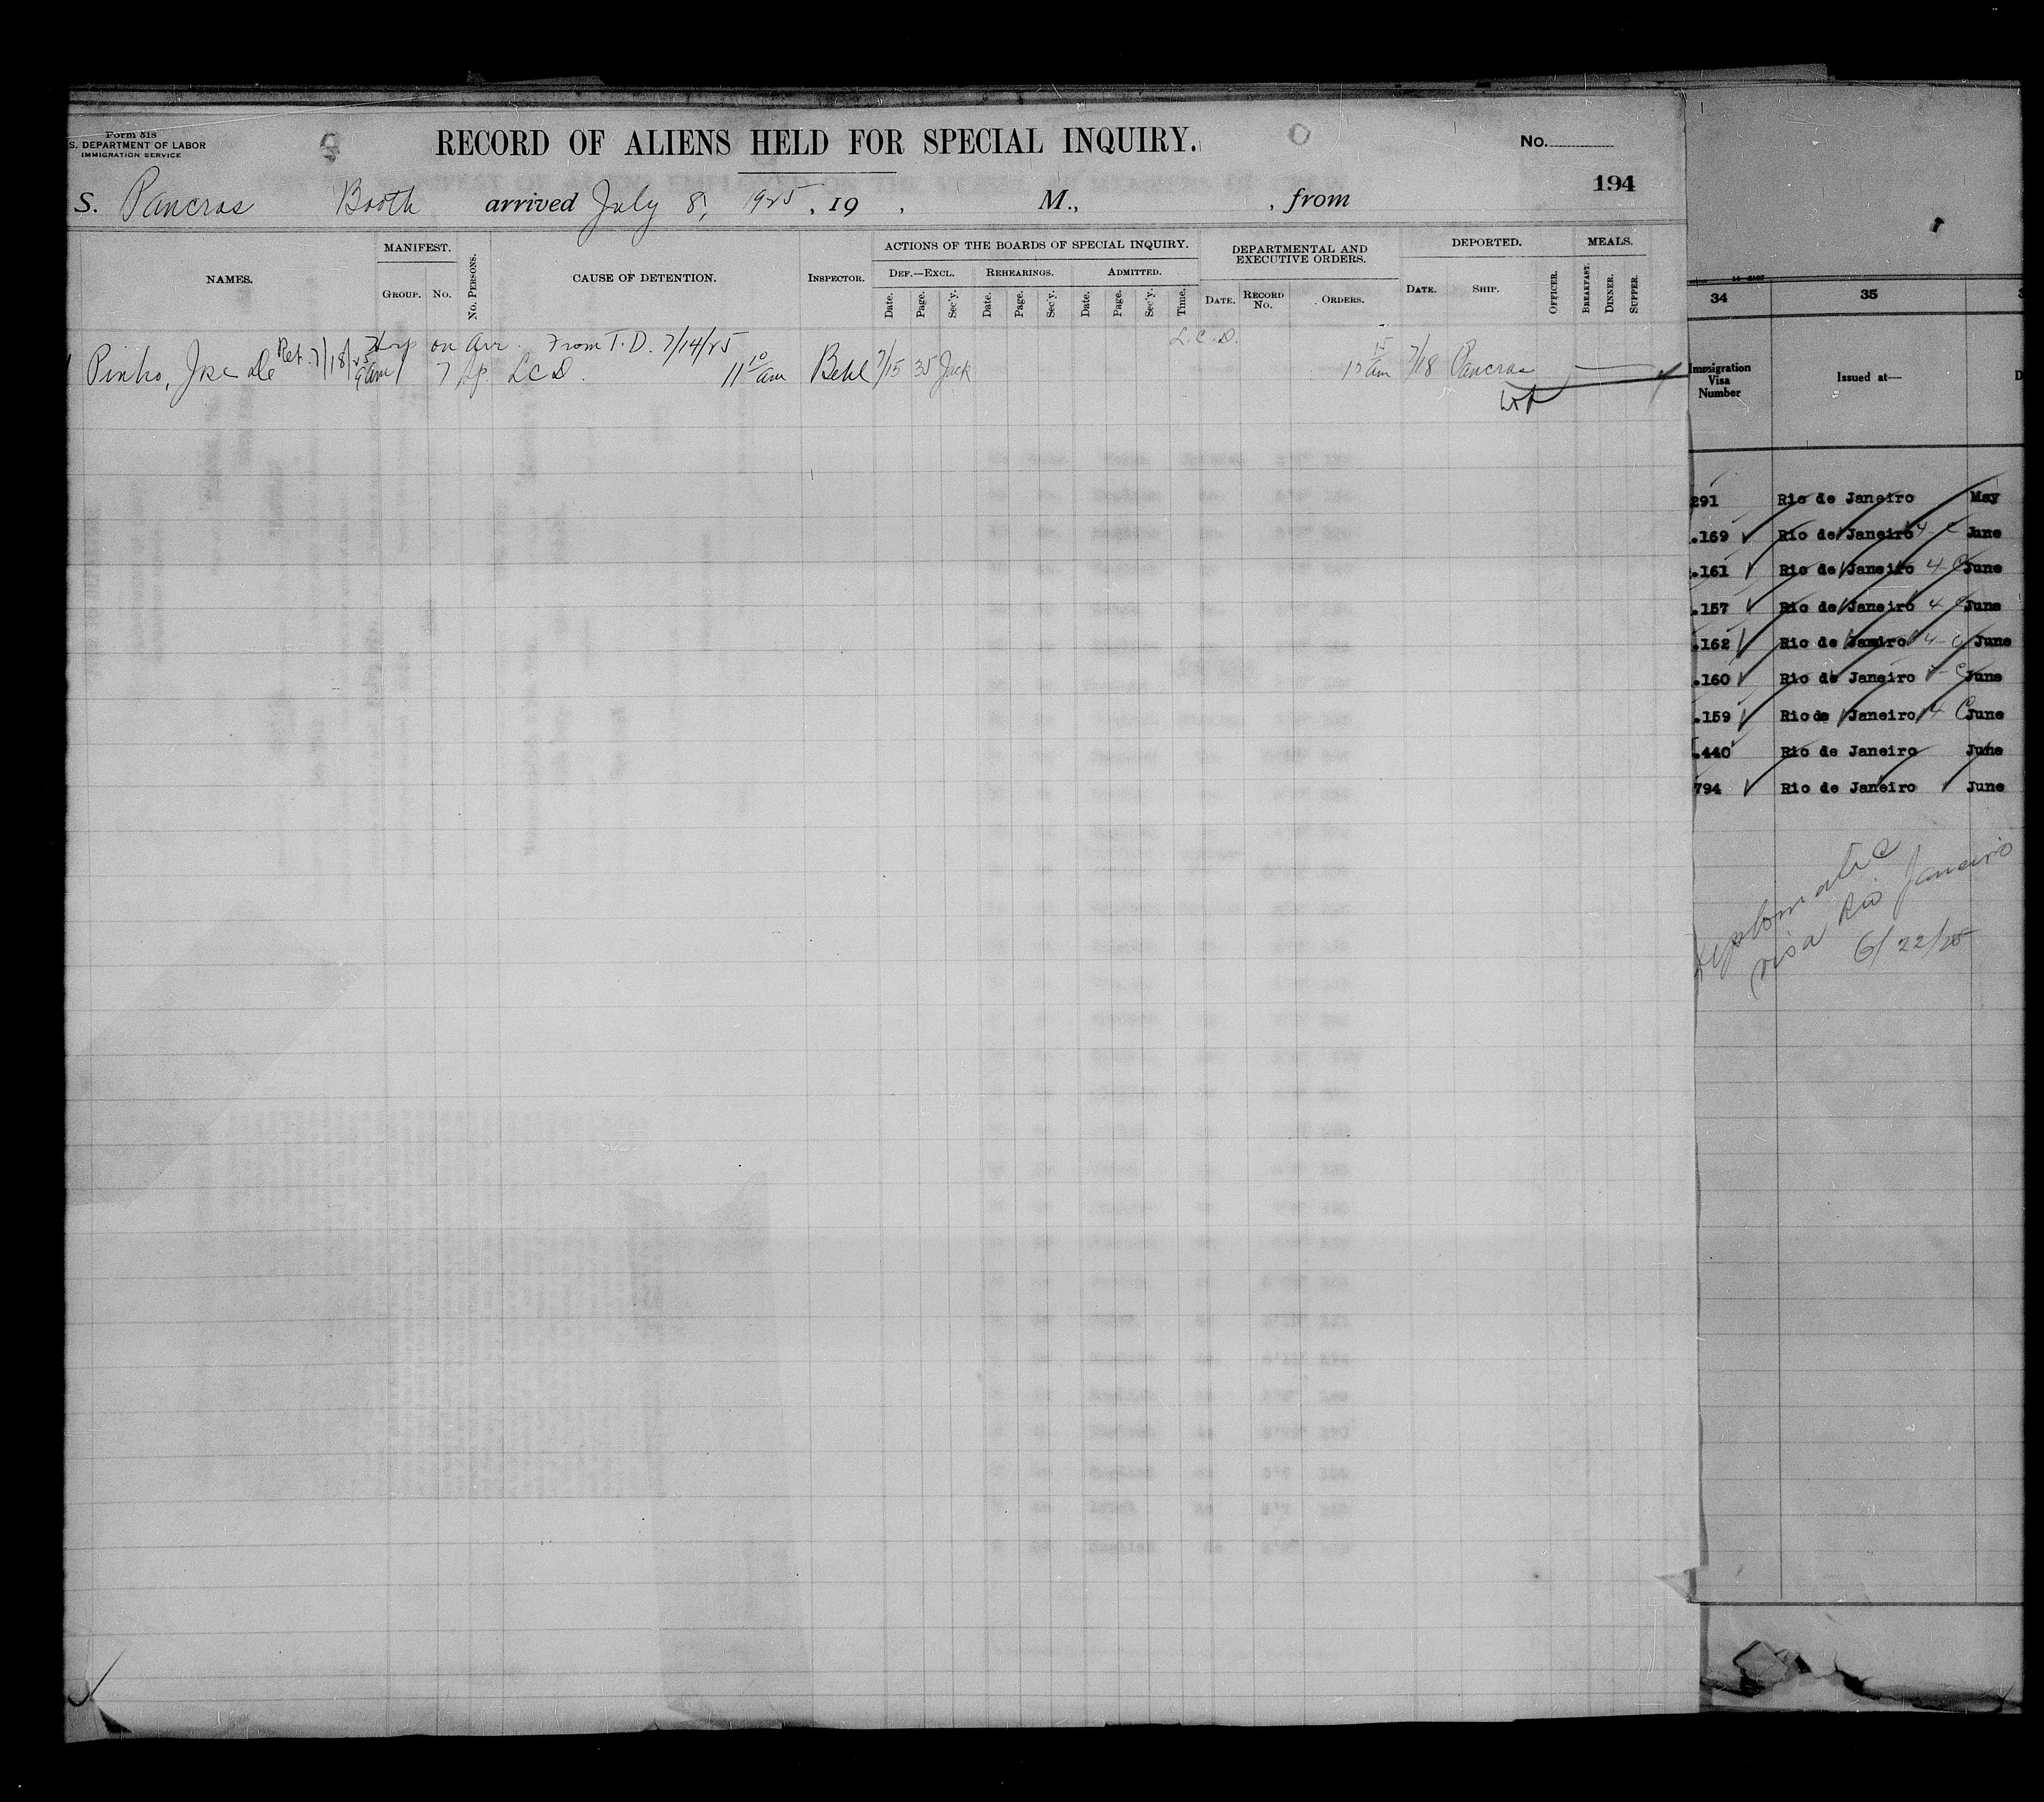 Form 518
S. DEPARTMENT OF LABOR
IMMIGRATION SERVICE
RECORD OF ALIENS HELD FOR SPECIAL INQUIRY.
No.
194
S. Pancras Booth arrived July 8, 1925, 19 , M., , from
NAMES.
MANIFEST.
GROUP. No.
No. PERSONS.
CAUSE OF DETENTION.
INSPECTOR.
ACTIONS OF THE BOARDS OF SPECIAL INQUIRY.
DEF.—EXCL. REHEARINGS. ADMITTED.
Date. Page. Sec'y. Date. Page. Sec'y. Date. Page. Sec'y. Time.
DEPARTMENTAL AND
EXECUTIVE ORDERS.
DATE. RECORD No. ORDERS.
DEPORTED.
DATE. SHIP. OFFICER.
MEALS.
BREAKFAST. DINNER. SUPPER.
Hosp on Arr. From T.D. 7/14/25 L.C.D.
1 Pinho, Jose de Ret. 7/18/25 9am 7 Sp. LCD 11 10 am Behl 7/15 35 Jack 15 am 7/18 Pancras
34 35
Immigration
Visa
Number
Issued at—
291 Rio de Janeiro May
.169 Rio de Janeiro 4-C June
.161 Rio de Janeiro 4-C June
.157 Rio de Janeiro 4 C June
.162 Rio de Janiro 4-C June
.160 Rio de Janeiro 4-C June
.159 Rio de Janeiro 4 C June
.440 Rio de Janeiro June
794 Rio de Janeiro June
diplomatic
visa Rio Janeiro
6/22/25